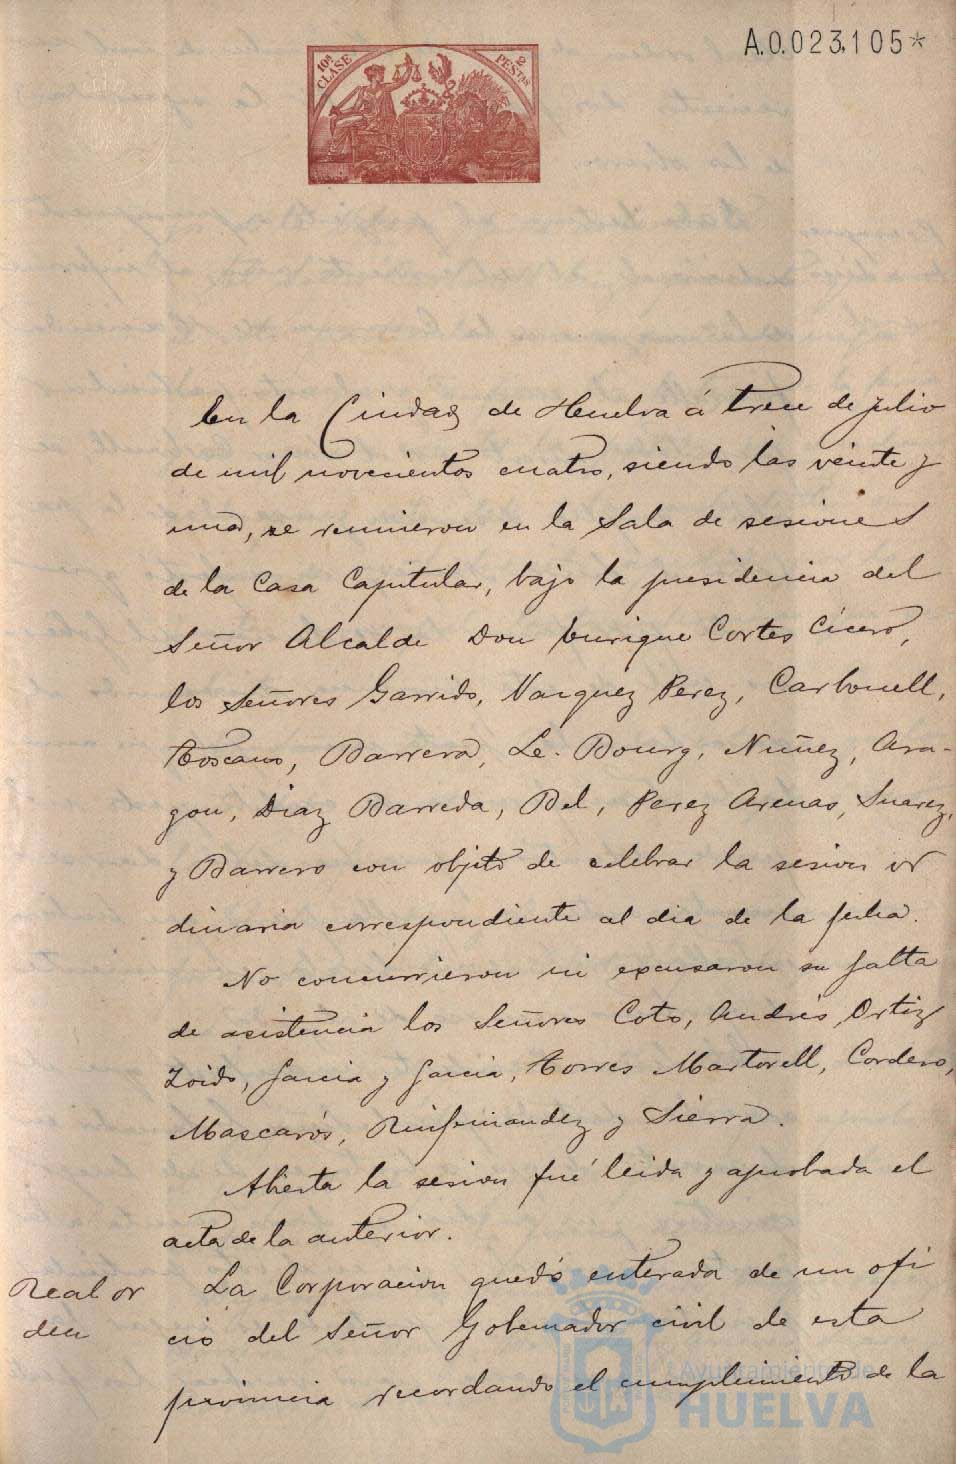 A.0.023,105*
10ª CLASE
2 PESTAS
En la Ciudad de Huelva á trece de julio
de mil novecientos cuatro, siendo las veinte y
una, se reunieron en la Sala de sesiones
de la Casa Capitular, bajo la presidencia del
Señor Alcalde Don Enrique Cortes Cícero,
los Señores Garrido, Vazquez Perez, Carbonell,
Toscano, Barrera, Le-Bourg, Nuñez, Ara-
gon, Diaz Barreda, Bel, Perez Arenas, Suarez,
y Barrero con objeto de celebrar la sesion or
dinaria correspondiente al dia de la fecha.
No concurrieron ni excusaron su falta
de asistencia los Señores Coto, Andrés, Ortiz
Zoido, Garcia y Garcia, Torres Martorell, Cordero,
Mascarós, y Sierra.
Abierta la sesion fué leida y aprobada el
acta de la anterior.
Real or
den
La Corporacion quedó enterada de un ofi
cio del Señor Gobernador civil de esta
provincia recordando el cumplimiento de la
Ayuntamiento de
HUELVA